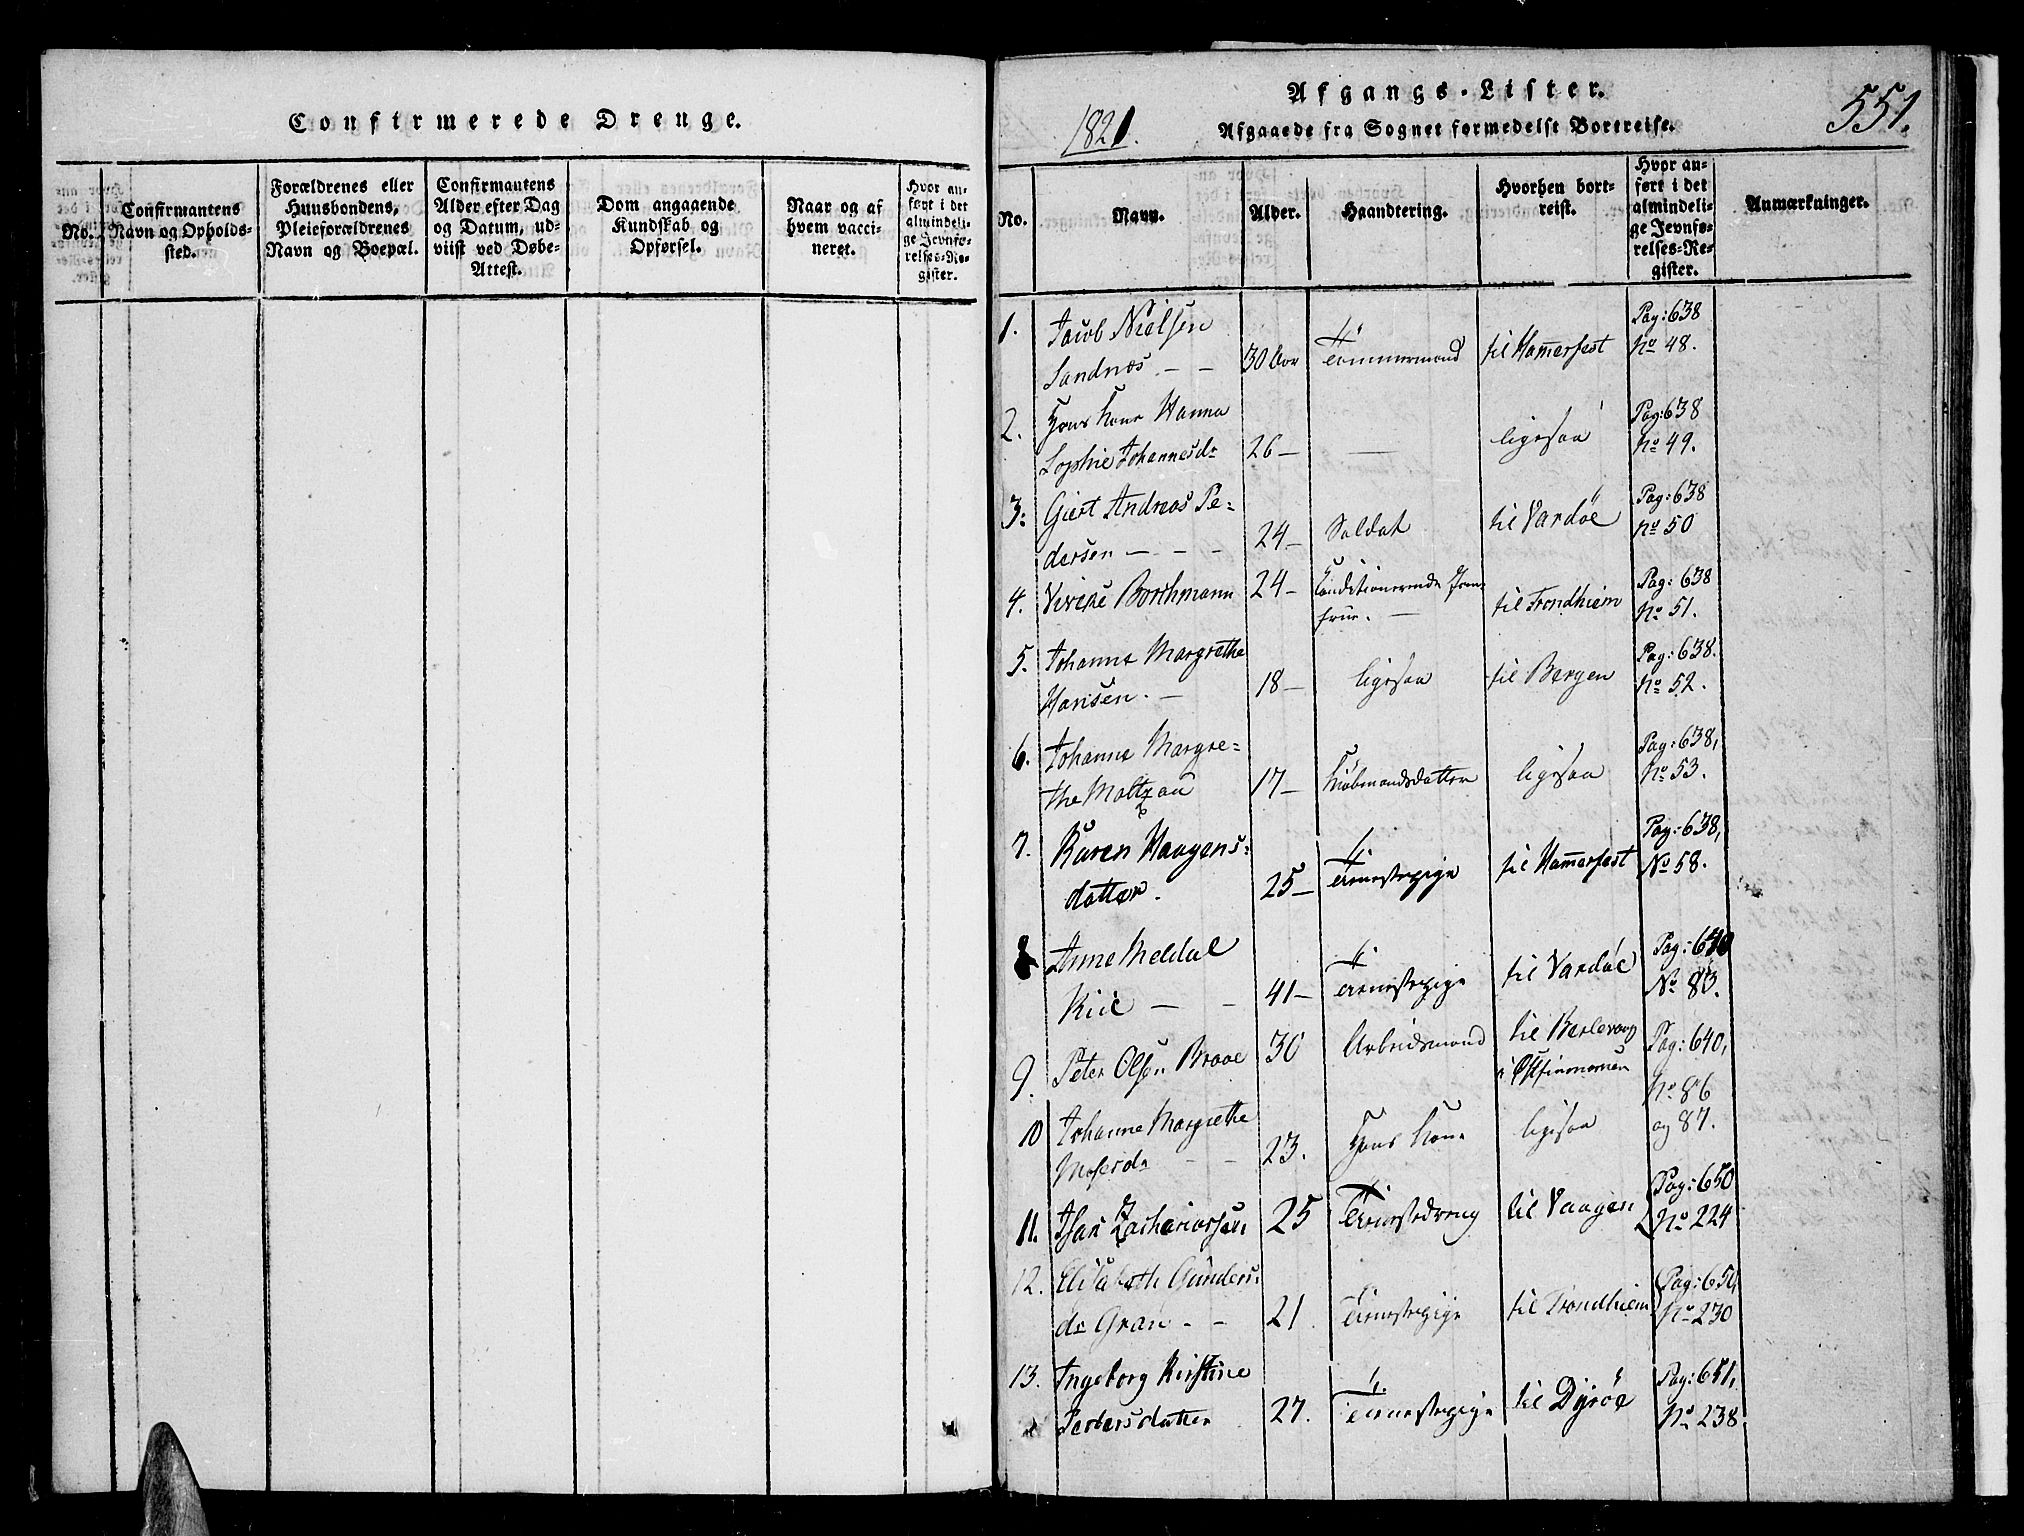 Confirmerede Drenge.
No.
Confirmantens
Navn og Opholds-
sted.
Forældrenes eller
Huusbondens,
Pleieforældrenes
Navn og Boepæl.
Confirmantens
Alder efter Dag
og Datum, ud-
viist ved Døbe-
Attest.
Dom angaaende
Kundskab og
Opførsel.
Naar og af
hvem vacci-
neret.
Hvor an-
ført i det
almindeli-
ge Jevnfø-
relses-Re-
gister.
Afgangs-Lister.
551.
1821.
Afgaaede fra Sognet formedelst Bortreise.
No.
Navn.
Alder.
Haandtering.
Hvorhen bort-
reist.
Hvor an-
ført i det
almindeli-
ge Jevnfø-
relses-Re-
gister.
Anmærkninger.
1.
Jacob Nielsen
Sandnæs. — —
30 Aar
Tømmermand
til Hamerfest
Pag: 638
No 48.
2.
Hans Kone Hanna
Sophie Johannesdr
26 —
—
ligesaa
Pag: 638
No 49.
3.
Giert Andreas Pe-
dersen — — —
24 —
Soldat
til Vardøe
Pag: 638
No 50
4.
Vivike Borchmann
24 —
Conditionerende Jom-
frue. —
til Trondhiem
Pag: 638
No 51.
5.
Johanne Margrethe
Hansen. —
18 —
ligesaa
til Bergen
Pag: 638.
No 52.
6.
Johanne Margre-
the Moltzau
17 —
Kiøbmandsdatter
ligesaa
Pag: 638,
No 53.
7.
Karen Haagens-
datter.
25 —
Tienestepige
til Hamerfest
Pag: 638,
No 58.
8
Anne Meldal
Kiil — —
41 —
Tienestepige
til Vardøe
Pag: 640
No 83.
9.
Peter Olsen Braae
30
Arbeidsmand
til Berlevaag
i Østfinmarnen
Pag: 640,
No 86
10
Johanne Margrethe
Mosesdr — —
23.
Hans Kone
ligesaa
og 87.
11.
Isac Zachariassen
25
Tienestedreng
til Vaagen
Pag: 650
No 224
12.
Elisabeth Gunders-
dr Gran — —
21.
Tienestepige
til Trondhiem
Pag: 650,
No 230
13.
Ingeborg Kirstine
Pedersdatter
27.
Tienestepige
til Dyrøe
Pag: 651,
No 238.